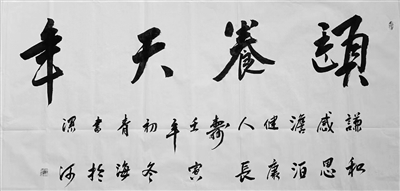 頤養天年
謙和
感恩
澹泊
健康
人長
壽
壬寅
年
初冬
青海
書於
漯河